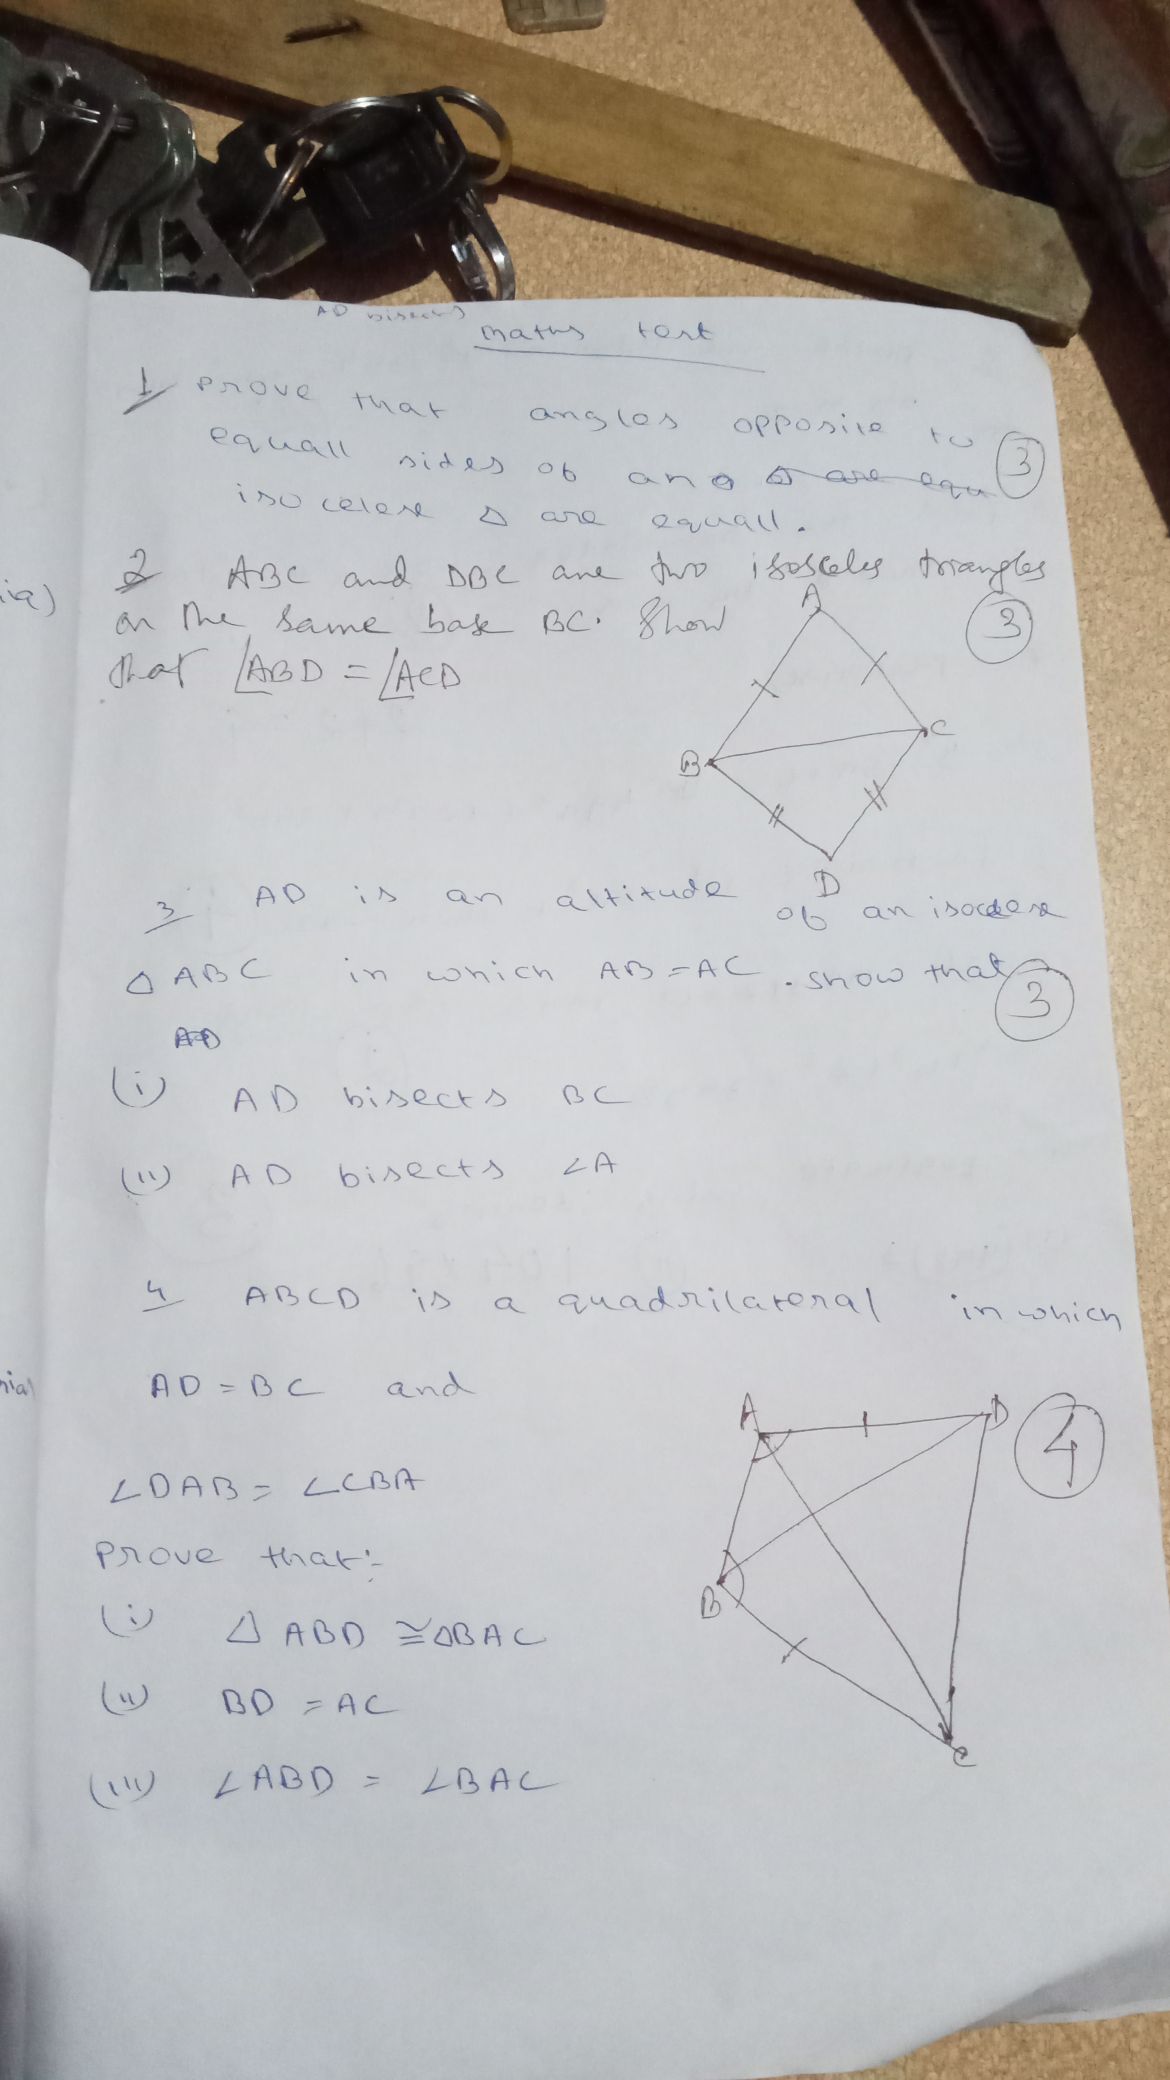 AD bisects
maths test
1 Prove that angles opposite to
equall sides of an
3
isocelese △ are equall.
2 ABC and DBC are two isosceles triangles
on the same base BC. Show
3
that ∠ABD = ∠ACD
A
B
C
D
3 AD is an altitude of an isocelese
△ ABC in which AB=AC. show that
3
(i) AD bisects BC
(ii) AD bisects ∠A
4 ABCD is a quadrilateral in which
AD = BC and
4
∠DAB = ∠CBA
Prove that:-
(i) △ ABD ≅ △BAC
(ii) BD = AC
(iii) ∠ABD = ∠BAC
A
D
B
C